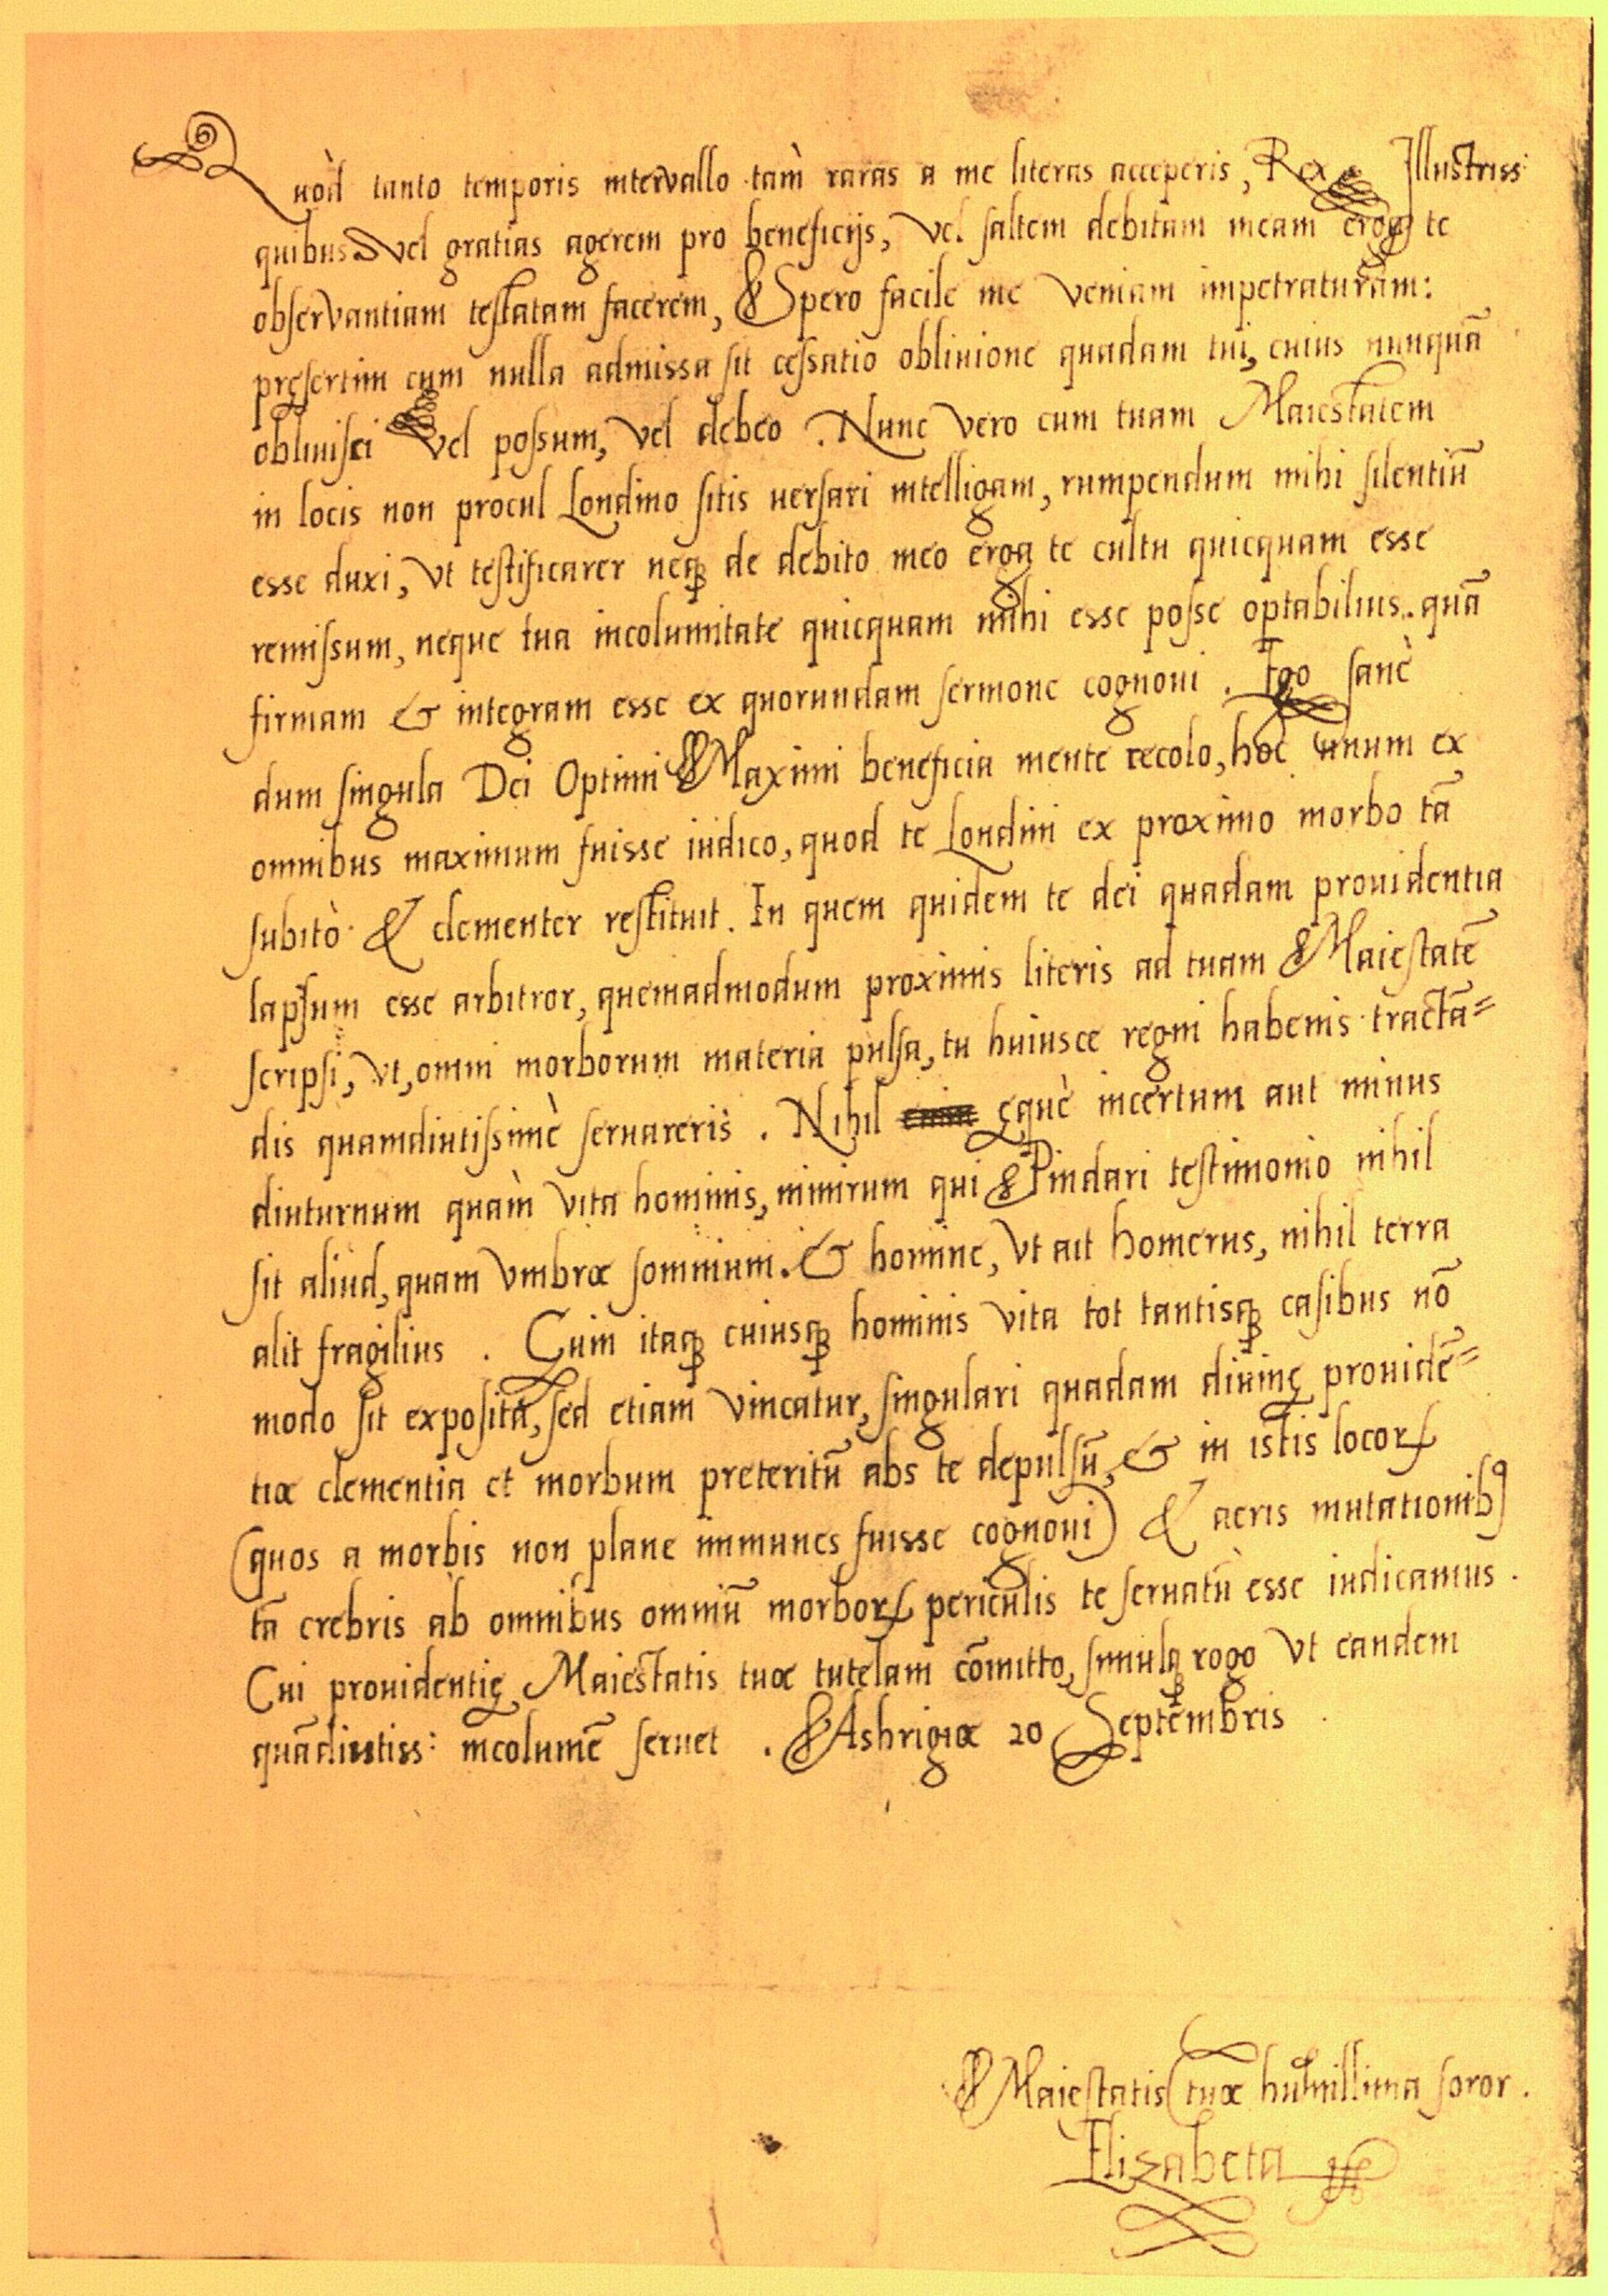 Quòd tanto temporis intervallo tam̀ raras a me literas acceperis, Rex Illustriss:
quibus vel gratias agerem pro beneficijs, vel saltem debitam meam erga te
observantiam testatam facerem, Spero facile me veniam impetraturam:
pręsertim cum nulla admissa sit cessatio obliuione quadam tui, cuius nunquā
obliuisci vel possum, vel debeo. Nunc vero cum tuam Maiestatem
in locis non procul Londino sitis uersari intelligam, rumpendum mihi silentiū
esse duxi, vt testificarer neqꝫ de debito meo erga te cultu quicquam esse
remissum, neque tua incolumitate quicquam mihi esse posse optabilius. quā
firmam & integram esse ex quorundam sermone cognoui. Ego sanè
dum singula Dei Optimi Maximi beneficia mente recolo, hoc unum ex
omnibus maximum fuisse iudico, quod te Londini ex proximo morbo tā
subitò & clementer restituit. In quem quidem te dei quadam prouidentia
lapsum esse arbitror, quemadmodum proximis literis ad tuam Maiestatē
scripsi, vt, omni morborum materia pulsa, tu huiusce regni habenis tractā=
dis quamdiutissimè seruareris. Nihil ęquè incertum aut minus
diuturnum quam̀ vita hominis, nimirum qui Pindari testimonio nihil
sit aliud, quam vmbræ somnium. & homine, vt ait homerus, nihil terra
alit fragilius. Cum itaqꝫ cuiusqꝫ hominis vita tot tantisqꝫ casibus nō
modo sit exposita, sed etiam vincatur, singulari quadam diuinę prouidē=
tiæ clementia et morbum preteritū abs te depulsū, & in istis locorꝝ
(quos a morbis non plane immunes fuisse cognoui) & aeris mutationibꝰ
tā crebris ab omnibus omniū morborꝝ periculis te seruatū esse iudicamus.
Cui prouidentię Maiestatis tuæ tutelam cōmitto, simulqꝫ rogo vt eandem
quādiutiss: incolumē seruet. Ashrigiæ 20 Septembris
Maiestatis tuæ humillima soror.
Elizabeta